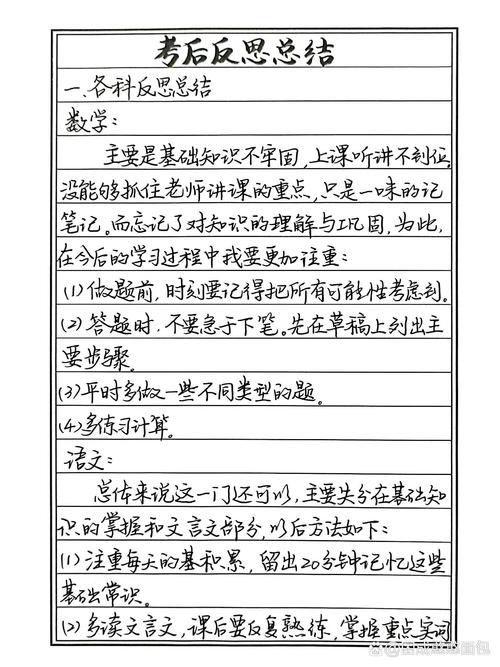 考后反思总结
一、各科反思总结
数学：
主要是基础知识不牢固，上课听讲不到位，
没能够抓住老师讲课的重点，只是一味的记
笔记。而忘记了对知识的理解与巩固，为此，
在今后的学习过程中我要更加注重：
(1)做题前，时刻要记得把所有可能性考虑到。
(2)答题时，不要急于下笔。先在草稿上列出主
要步骤。
(3)平时多做一些不同类型的题。
(4)多练习计算。
语文：
总体来说这一门还可以，主要失分在基础知
识的掌握和文言文部分，以后方法如下：
(1)注重每天的基积累，留出20分钟记忆这些
基础常识。
(2)多读文言文，课后要反复熟练，掌握重点实词